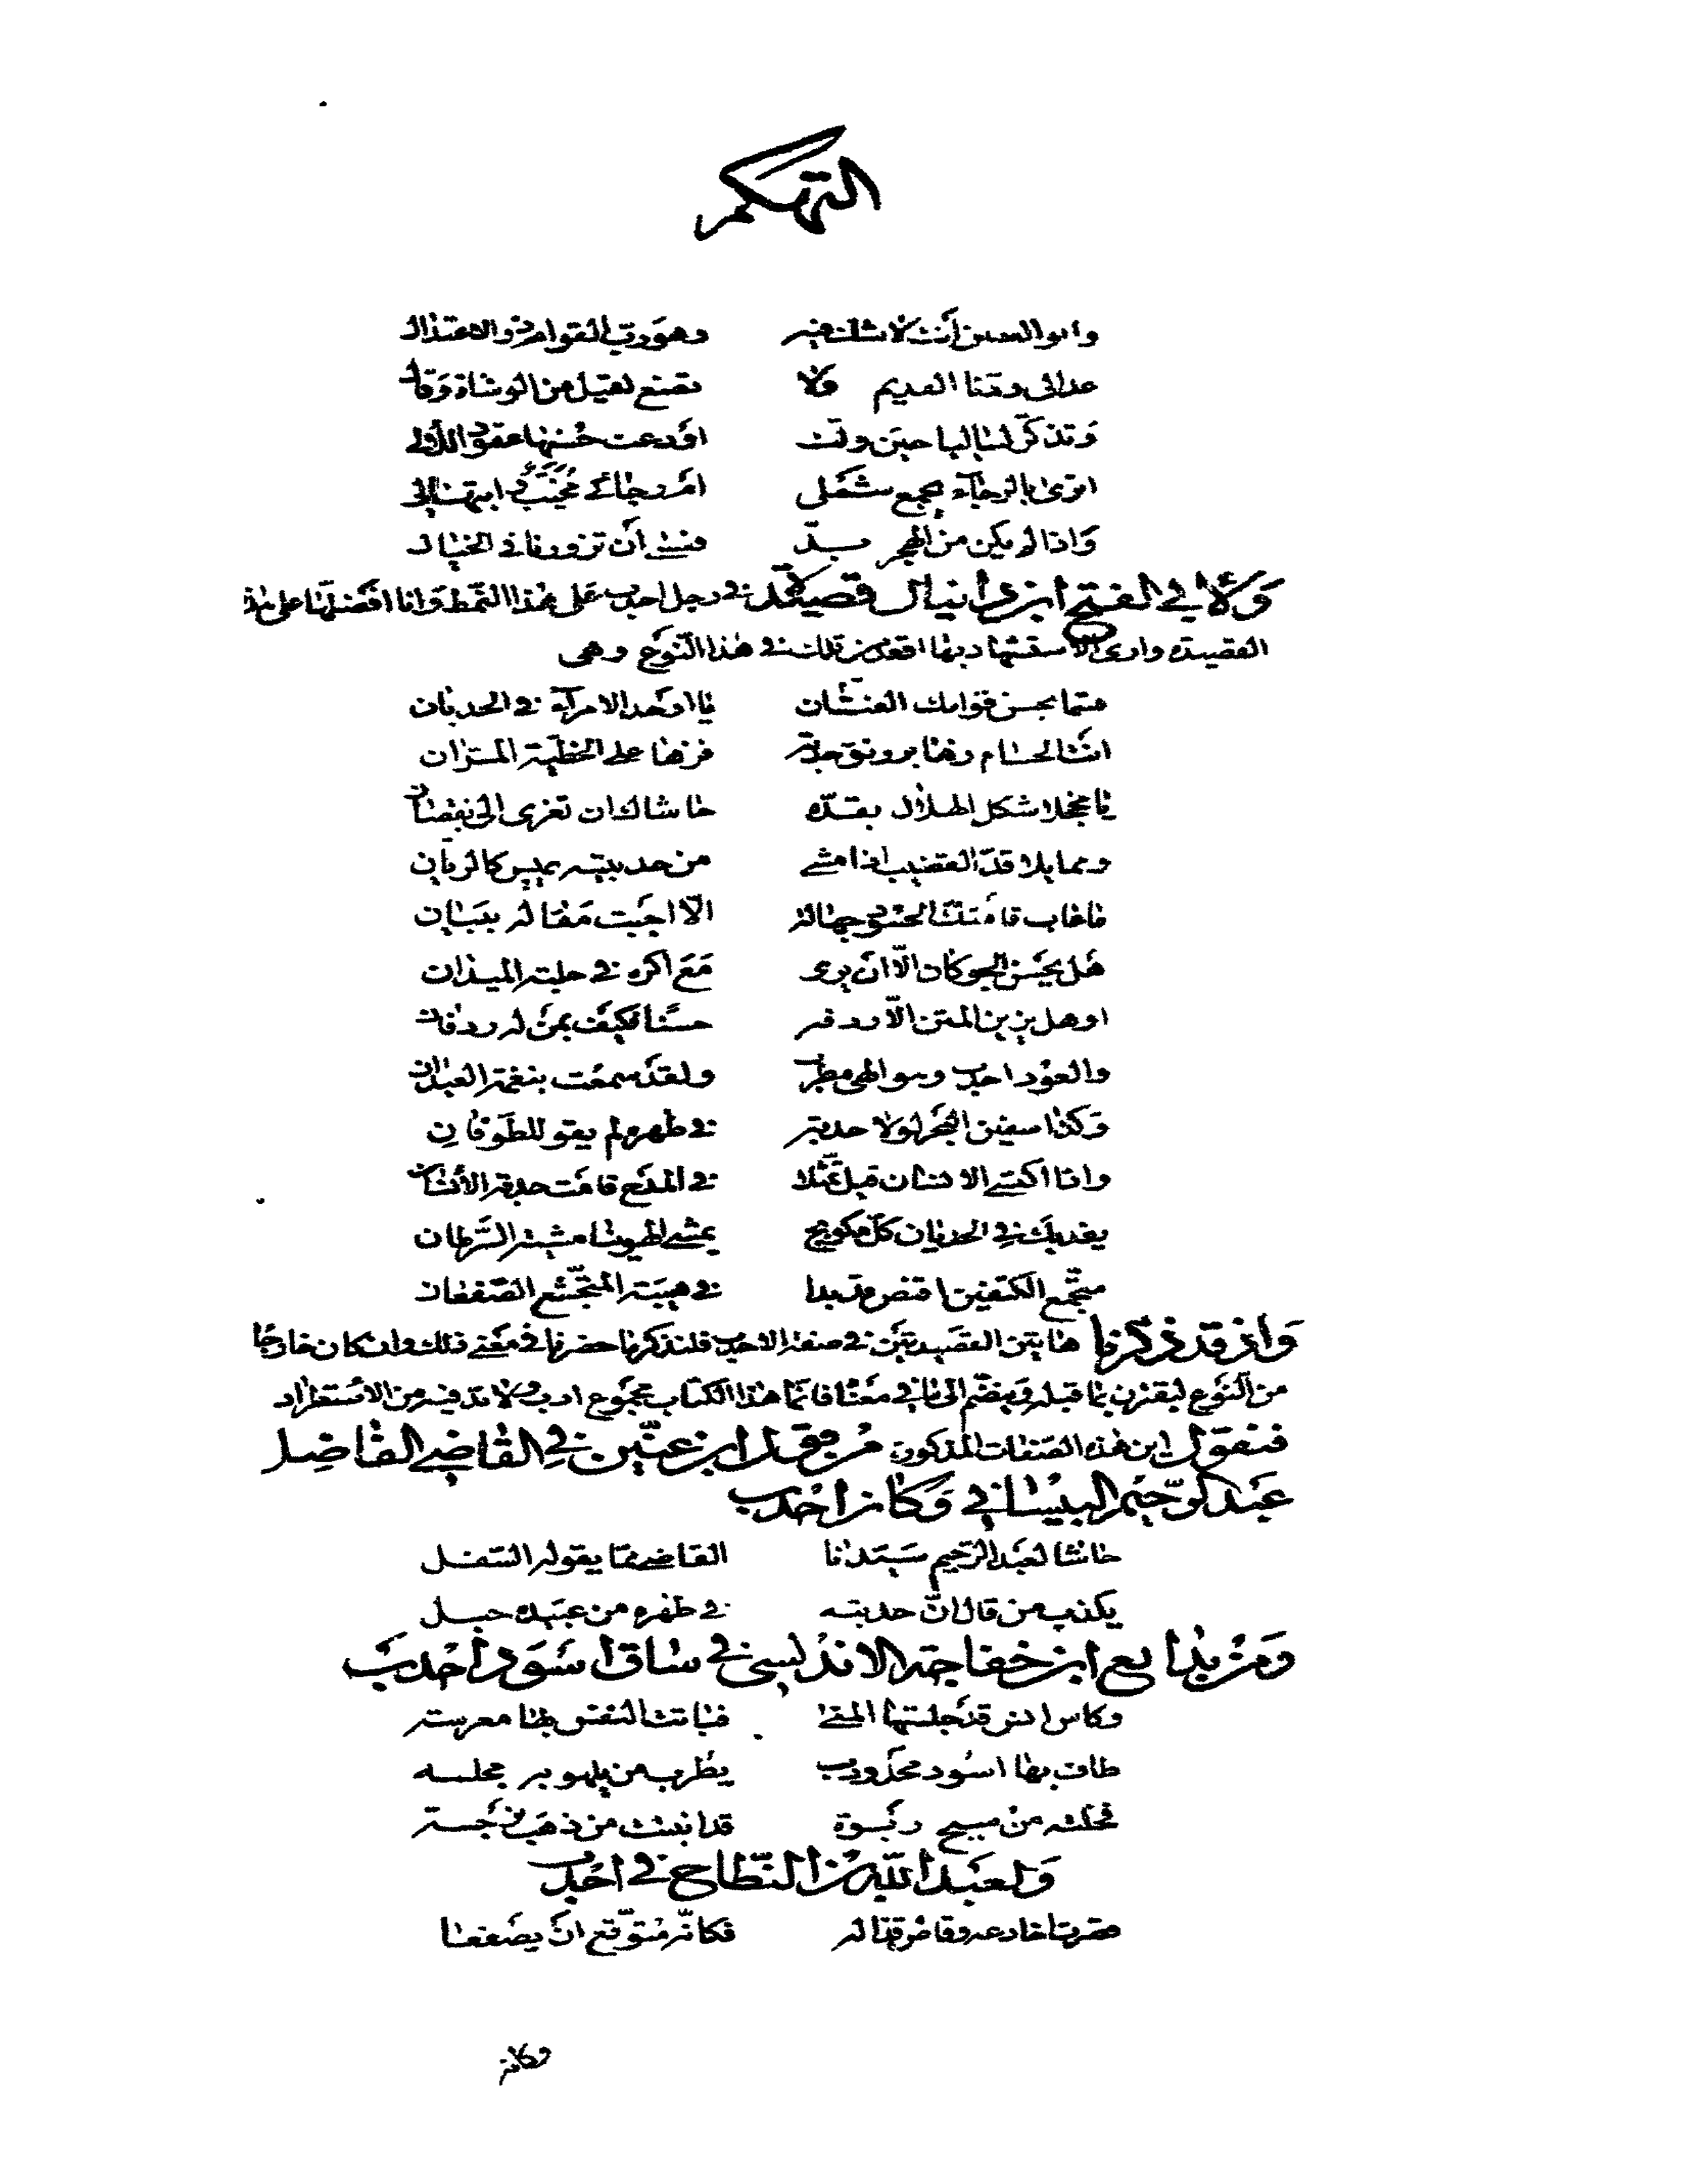 التهكم
وابو الحسن أنت لا شك فيه وهو رب القوام والاعتدال
عد الى ودنا القديم ولا تصغ لقيل من الوشاة وقال
وتذكر ليالياً حين ولت اودعت حسنها عقود اللآلي
اترى بالرجاء يجمع شملي ام رجائي مخيب في ابتهالي
وَاذا لم يكن من الهجر بدّ فعسى أن تزورنا في الخيال
وَلأبي الفتح ابن دانيال قصيدة في رجل احدب على هذا النمط وَانا افضلها على هذه
القصيدة وارى الاستشهاد بها اقعد من تلك في هذا النوع وهي
قسما بحسن قوامك الفتّان يا اوحد الامرآء في الحدبان
انت الحسام زها برونق حدبه فزها على الخطّية المران
يا مخجلا شكل الهلال بقدّه حاشاك ان تعزى الى نقصان
ومماثلا قدّ القضيب اذا مشى من حدبتيه يميس كالريان
ما عاب قامتك الحسود جهالة الّا اجبت مقاله ببيان
هل يحسن الجوكان الّا ان يرى مع اكره في حلبة الميدان
او هل يزين المتن الّا ردفه حسنًا فكيف بمن له ردفان
والعود احدب وهو الهى مطرب ولقد سمعت بنغمة العيدان
وكذا سفين البحر لولا حدبة في ظهره لم يقو للطوفان
واذا اكتسى الانسان قيل تمثلا في المدح قامت حدبة الانسان
يفديك في الحدبان كلّ مكوبج يمشي الهوينا مشية السّرطان
متجمع الكتفين اقنص قد بدا في هيبة المتجشّع الصّفعان
وَاذ قد ذكرنا هاتين القصيدتين في صفة الاحدب فلنذكر ما حضرنا في معنى ذلك وان كان خارجًا
من النّوع ليقترن بما قبله وينضم الى ما في معناه فانّما هذا الكتاب مجموع ادب ولا بد فيه من الاستطراد
فنقول من هذه الصفات المذكورة مرّ قول ابن عنين في القاضي الفاضل
عبد الرّحيم البيساني وَكان احدب
حاشا لعبد الرّحيم سيّدنا القاضي ممّا يقوله السّفل
يكذب من قال انّ حدبته في ظهره من عبيده حبل
وَمن بدايع ابن خفاجة الاندلسي في ساق اسود احدب
وكاس انس قد جلتها المنى فباتت النفس بها معرسه
طاف بها اسود محدودب يطرب من يلهو به مجلسه
فخلته من سبج ربوة قد انبتت من ذهب نرجسه
وَلعبد الله بن النّطاح في احدب
قصرت اخادعه وغاص قذاله فكانّه متوقّع ان يصفعا
وكانه